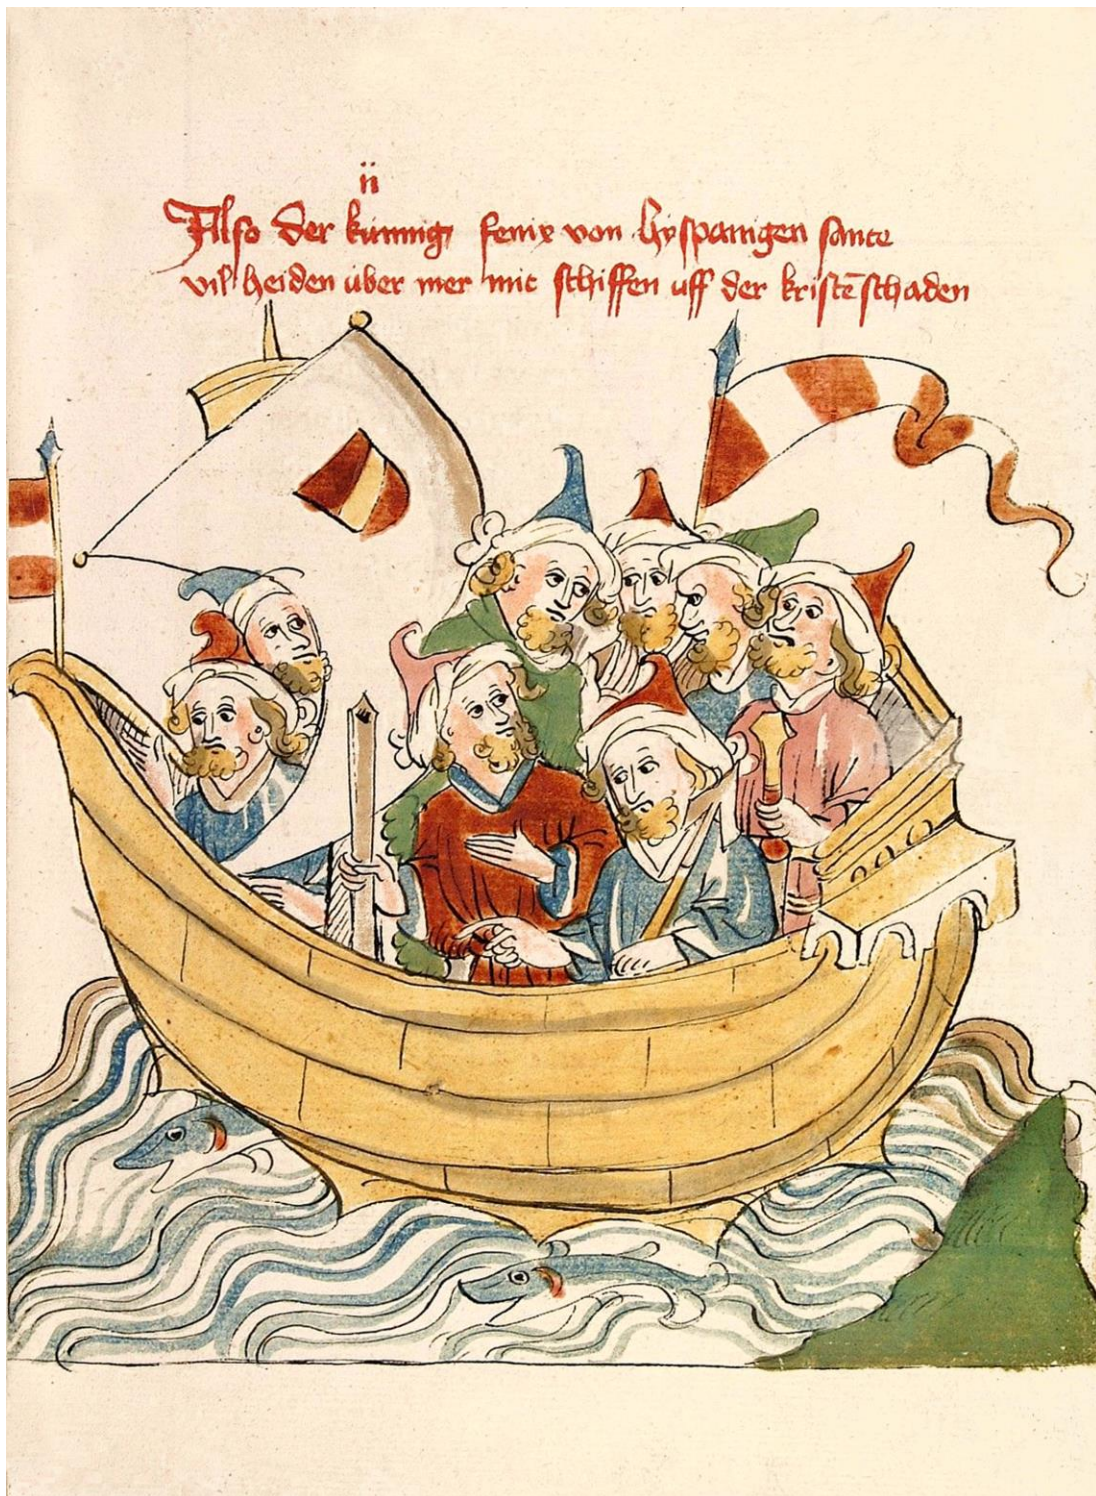 ii
Also der künnig fenix von hyspanigen sante
vil heiden über mer mit schiffen uff der kristē schaden